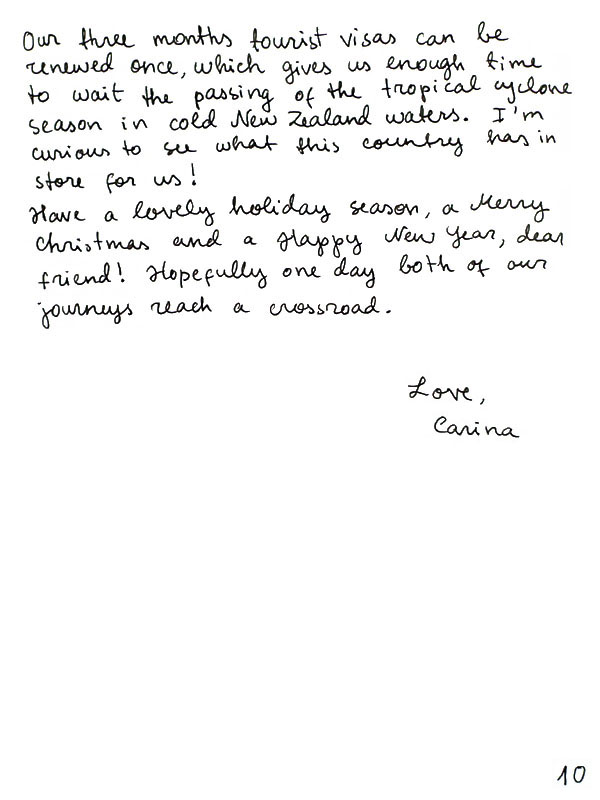 Our three months tourist visas can be
renewed once, which gives us enough time
to wait the passing of the tropical cyclone
season in cold New Zealand waters. I'm
curious to see what this country has in
store for us!
Have a lovely holiday season, a Merry
Christmas and a Happy New Year, dear
friend! Hopefully one day both of our
journeys reach a crossroad.
Love,
Carina
10